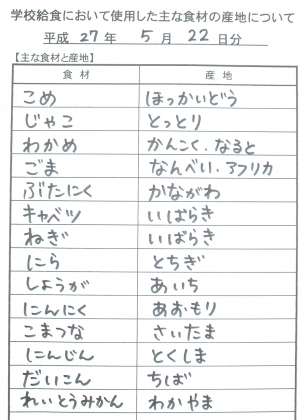 学校給食において使用した主な食材の産地について
平成 27 年 5 月 22 日分
【主な食材と産地】
食 材 産 地
こめ ほっかいどう
じゃこ とっとり
わかめ かんこく、なると
ごま なんべい、アフリカ
ぶたにく かながわ
キャベツ いばらき
ねぎ いばらき
にら とちぎ
しょうが あいち
にんにく あおもり
こまつな さいたま
にんじん とくしま
だいこん ちば
れいとうみかん わかやま